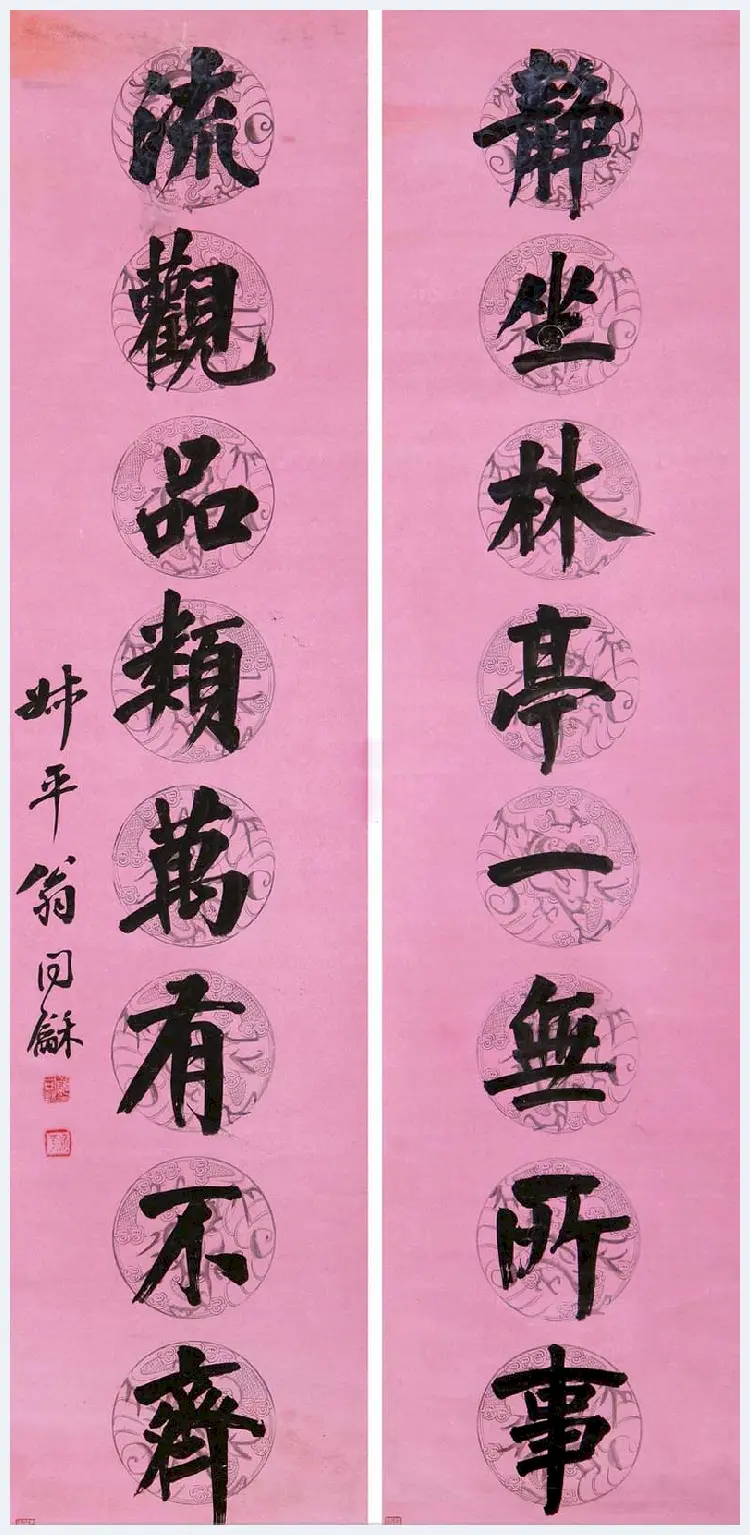 靜坐林亭一無所事
流觀品類萬有不齊
翁同龢